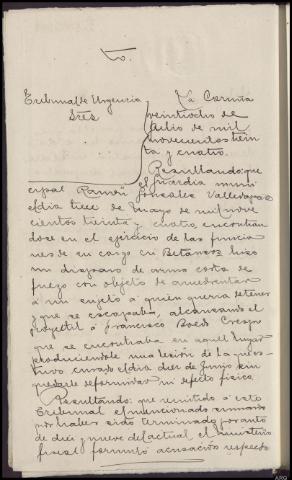 Tribunal de Urgencia
Sres
La Coruña
veintiocho de
Julio de mil
novecientos trein
ta y cuatro.
Resultando: que
el guardia muni
cipal Ramón González Valledepaz
el día trece de mayo de mil nove
cientos treinta y cuatro, encontran
dose en el ejercicio de las funcio
nes de su cargo en Betanzos hizo
un disparo de arma corta de
fuego con objeto de amedrentar
a un sujeto a quien quería detener
y que se escapaba, alcanzando el
proyectil a Francisco Boedo Crespo
que se encontraba en aquel lugar
produciendole una lesión de la que es
tuvo curado el día diez de Junio sin
quedarle deformidad ni defecto físico
Resultando: que remitido a este
Tribunal el mencionado sumario
por haber sido terminado por auto
de diez y nueve del actual, el ministerio
fiscal formuló acusación respecto